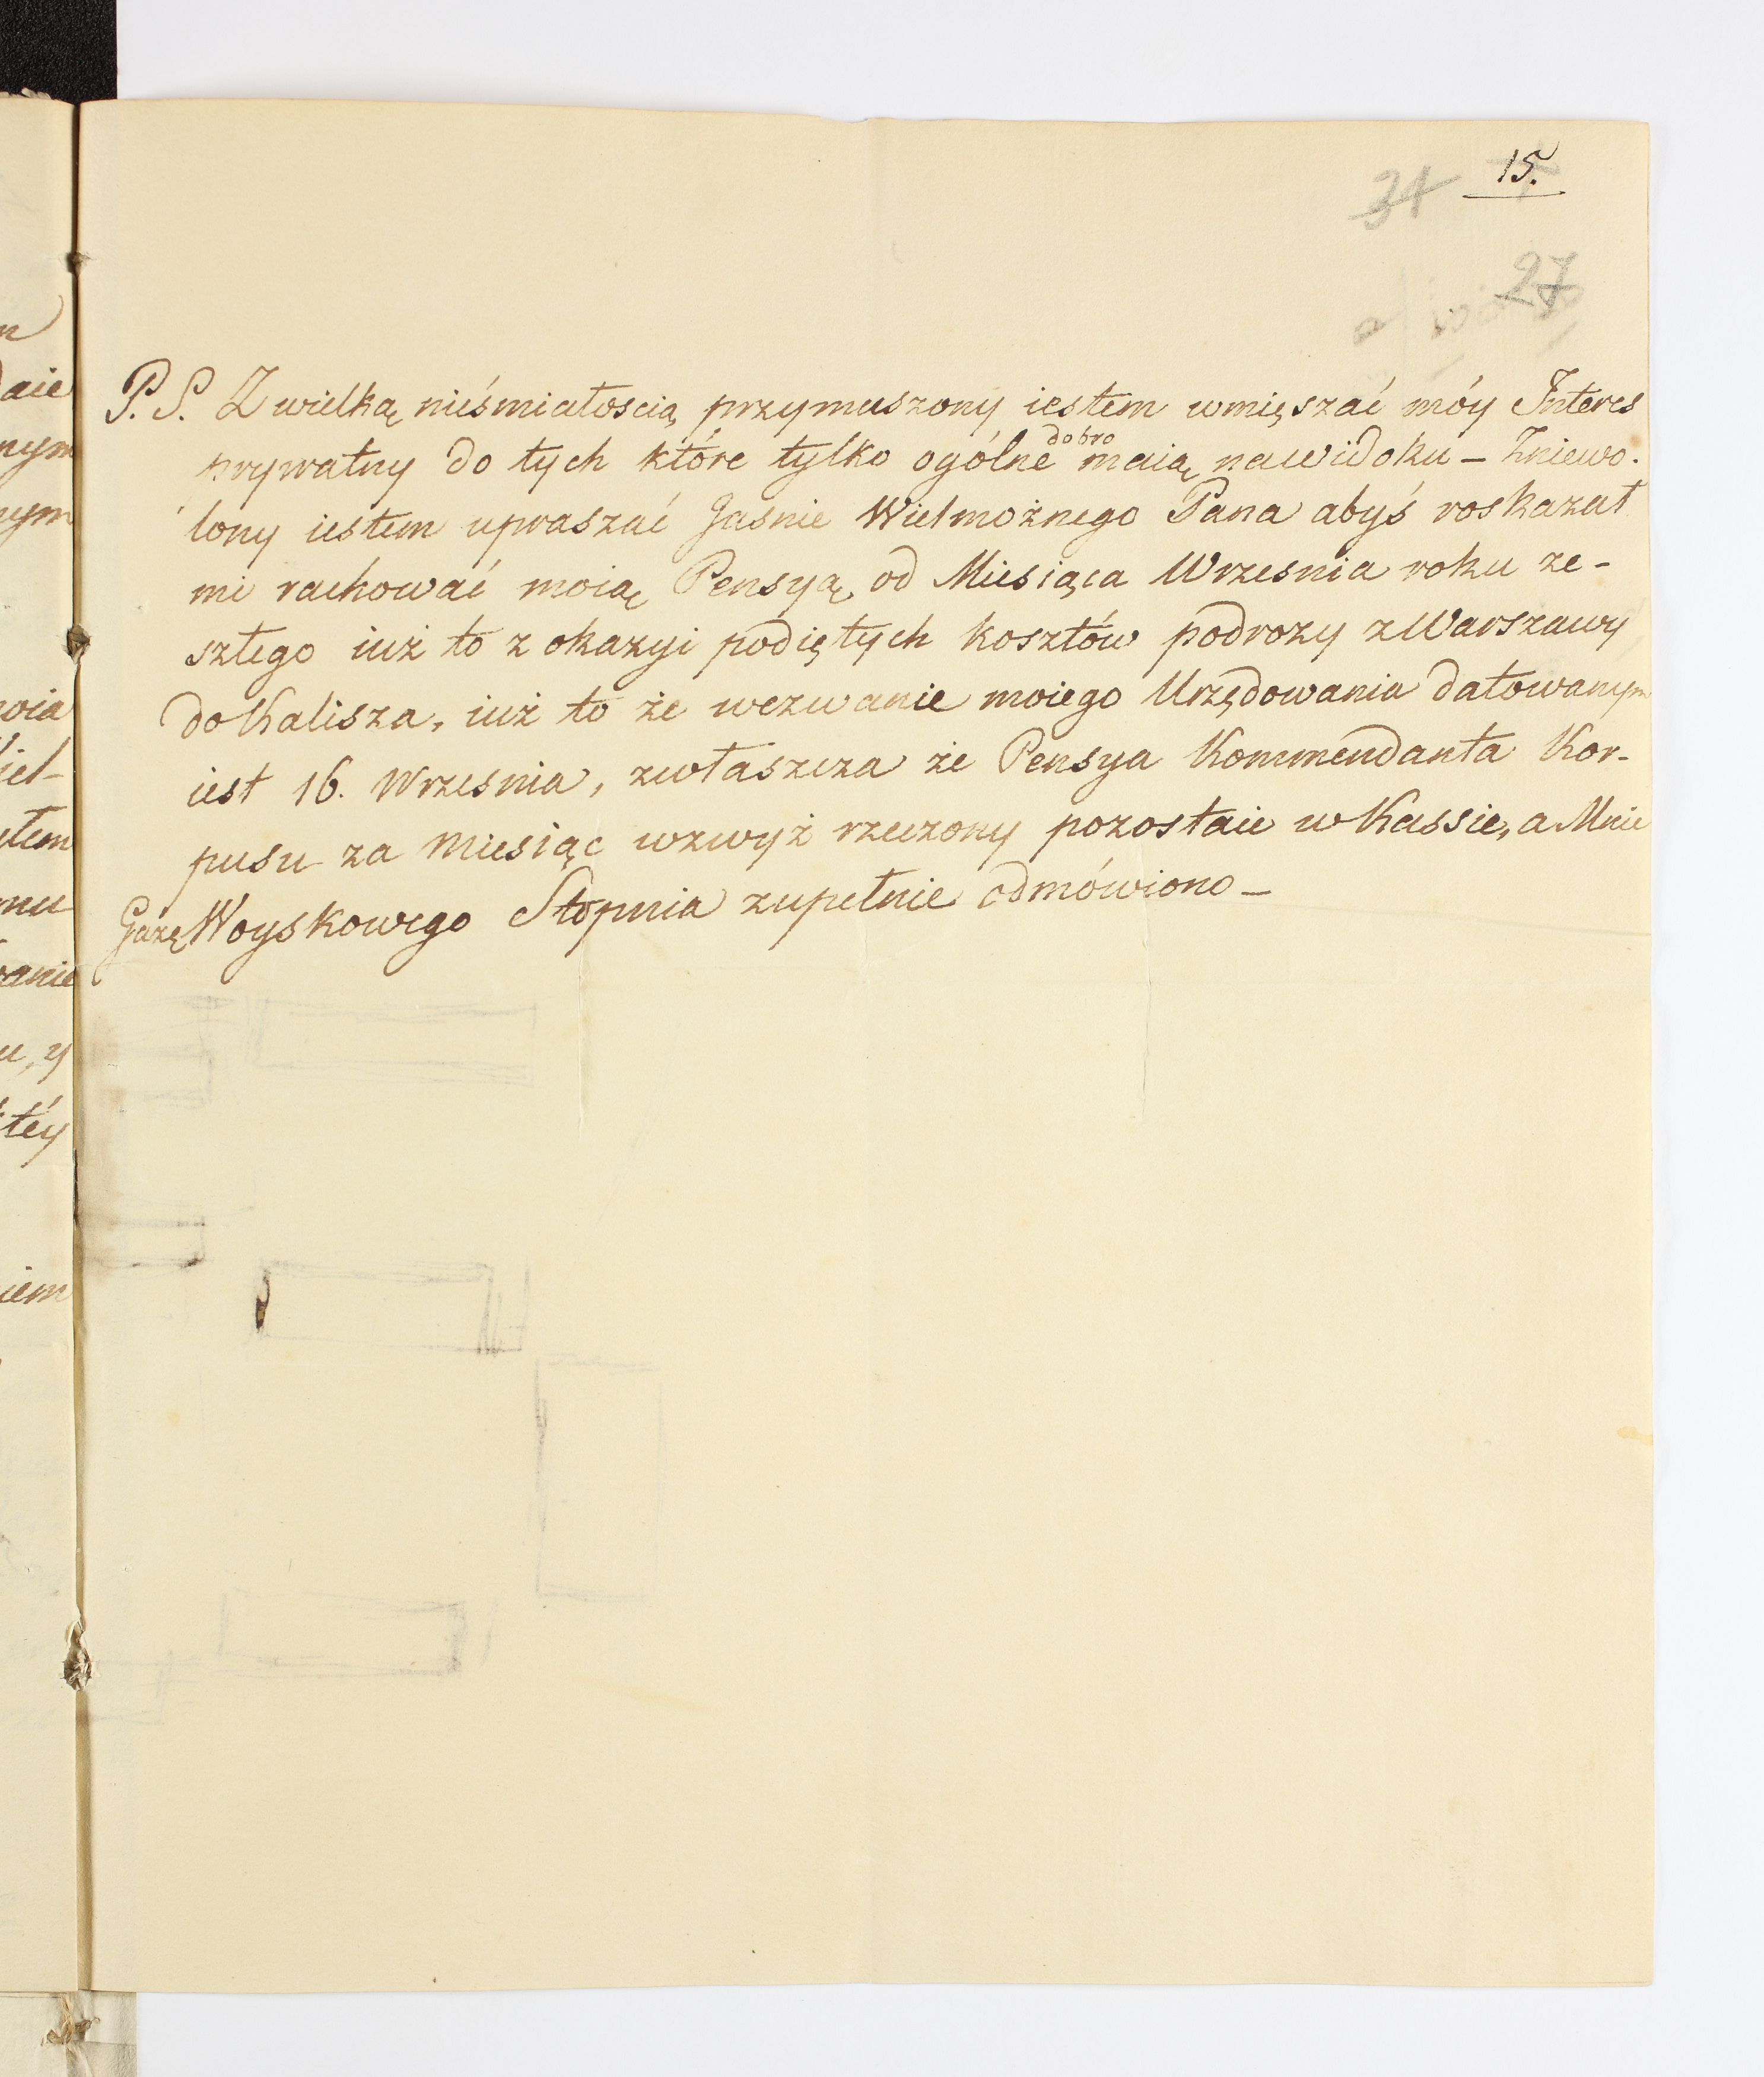 15.
31
27
P. S. Z wielką nieśmiałoscią przymuszony iestem wmięszać móy Interes
prywatny do tych które tylko ogólne dobro maią na widoku – Zniewo-
lony iestem upraszać Jasnie Wielmożnego Pana abyś roskazał
mi rachować moią Pensyą od Miesiąca Wrzesnia roku ze-
szłego iuż to z okazyi podiętych kosztów podrozy z Warszawy
do Kalisza, iuż to że wezwanie moiego Urzędowania datowanym
iest 16. Wrzesnia, zwłaszcza że Pensya Kommendanta Kor-
pusu za Miesiąc wzwyż rzeczony pozostaie w Kassie, a Mnie
Gażę Woyskowego Stopnia zupełnie odmówiono –
aie
nym
nym
woia
iel-
łem
mu
anie
u, y
téy
iem